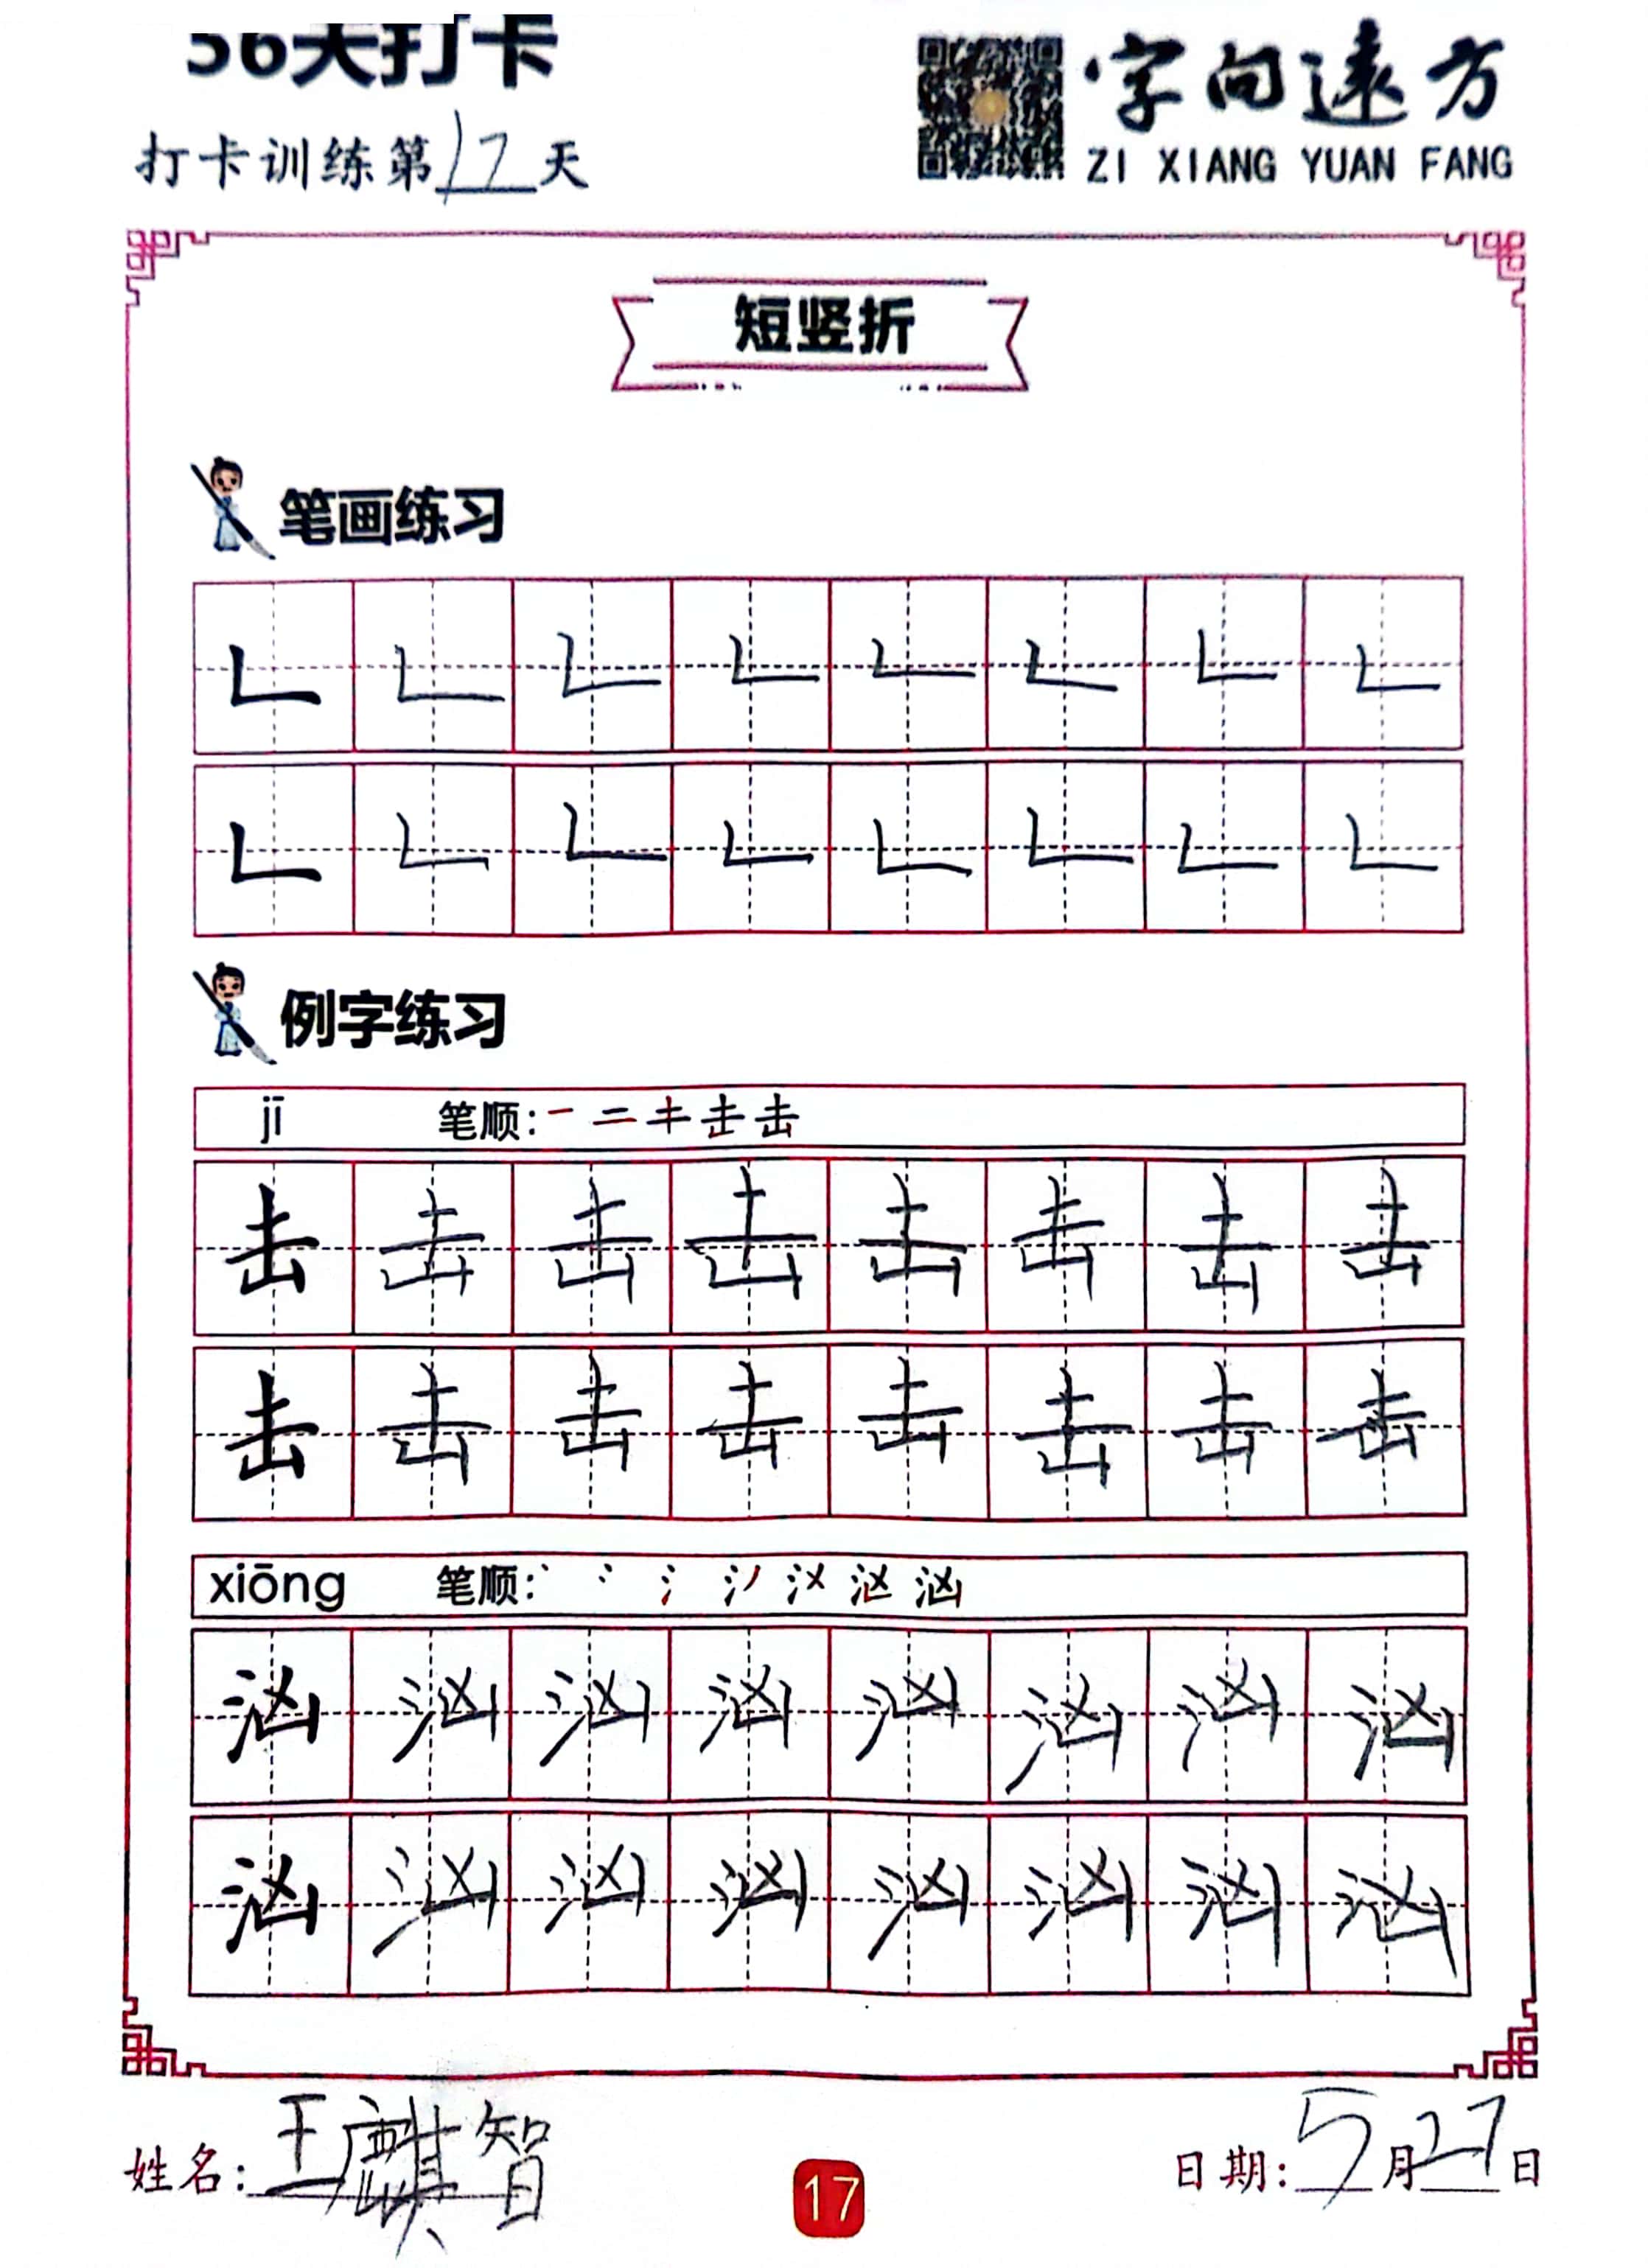 56天打卡
字向遠方
打卡训练第17天
ZI XIANG YUAN FANG
短竖折
笔画练习
𠃊 𠃊 𠃊 𠃊 𠃊 𠃊 𠃊 𠃊
𠃊 𠃊 𠃊 𠃊 𠃊 𠃊 𠃊 𠃊
例字练习
jī 笔顺: 一 二 キ 击 击
击 击 击 击 击 击 击 击
击 击 击 击 击 击 击 击
xiōng 笔顺: 丶 冫 氵 氵丿 汷 汹 汹
汹 汹 汹 汹 汹 汹 汹 汹
汹 汹 汹 汹 汹 汹 汹 汹
姓名: 王麒智
17
日期: 5月27日